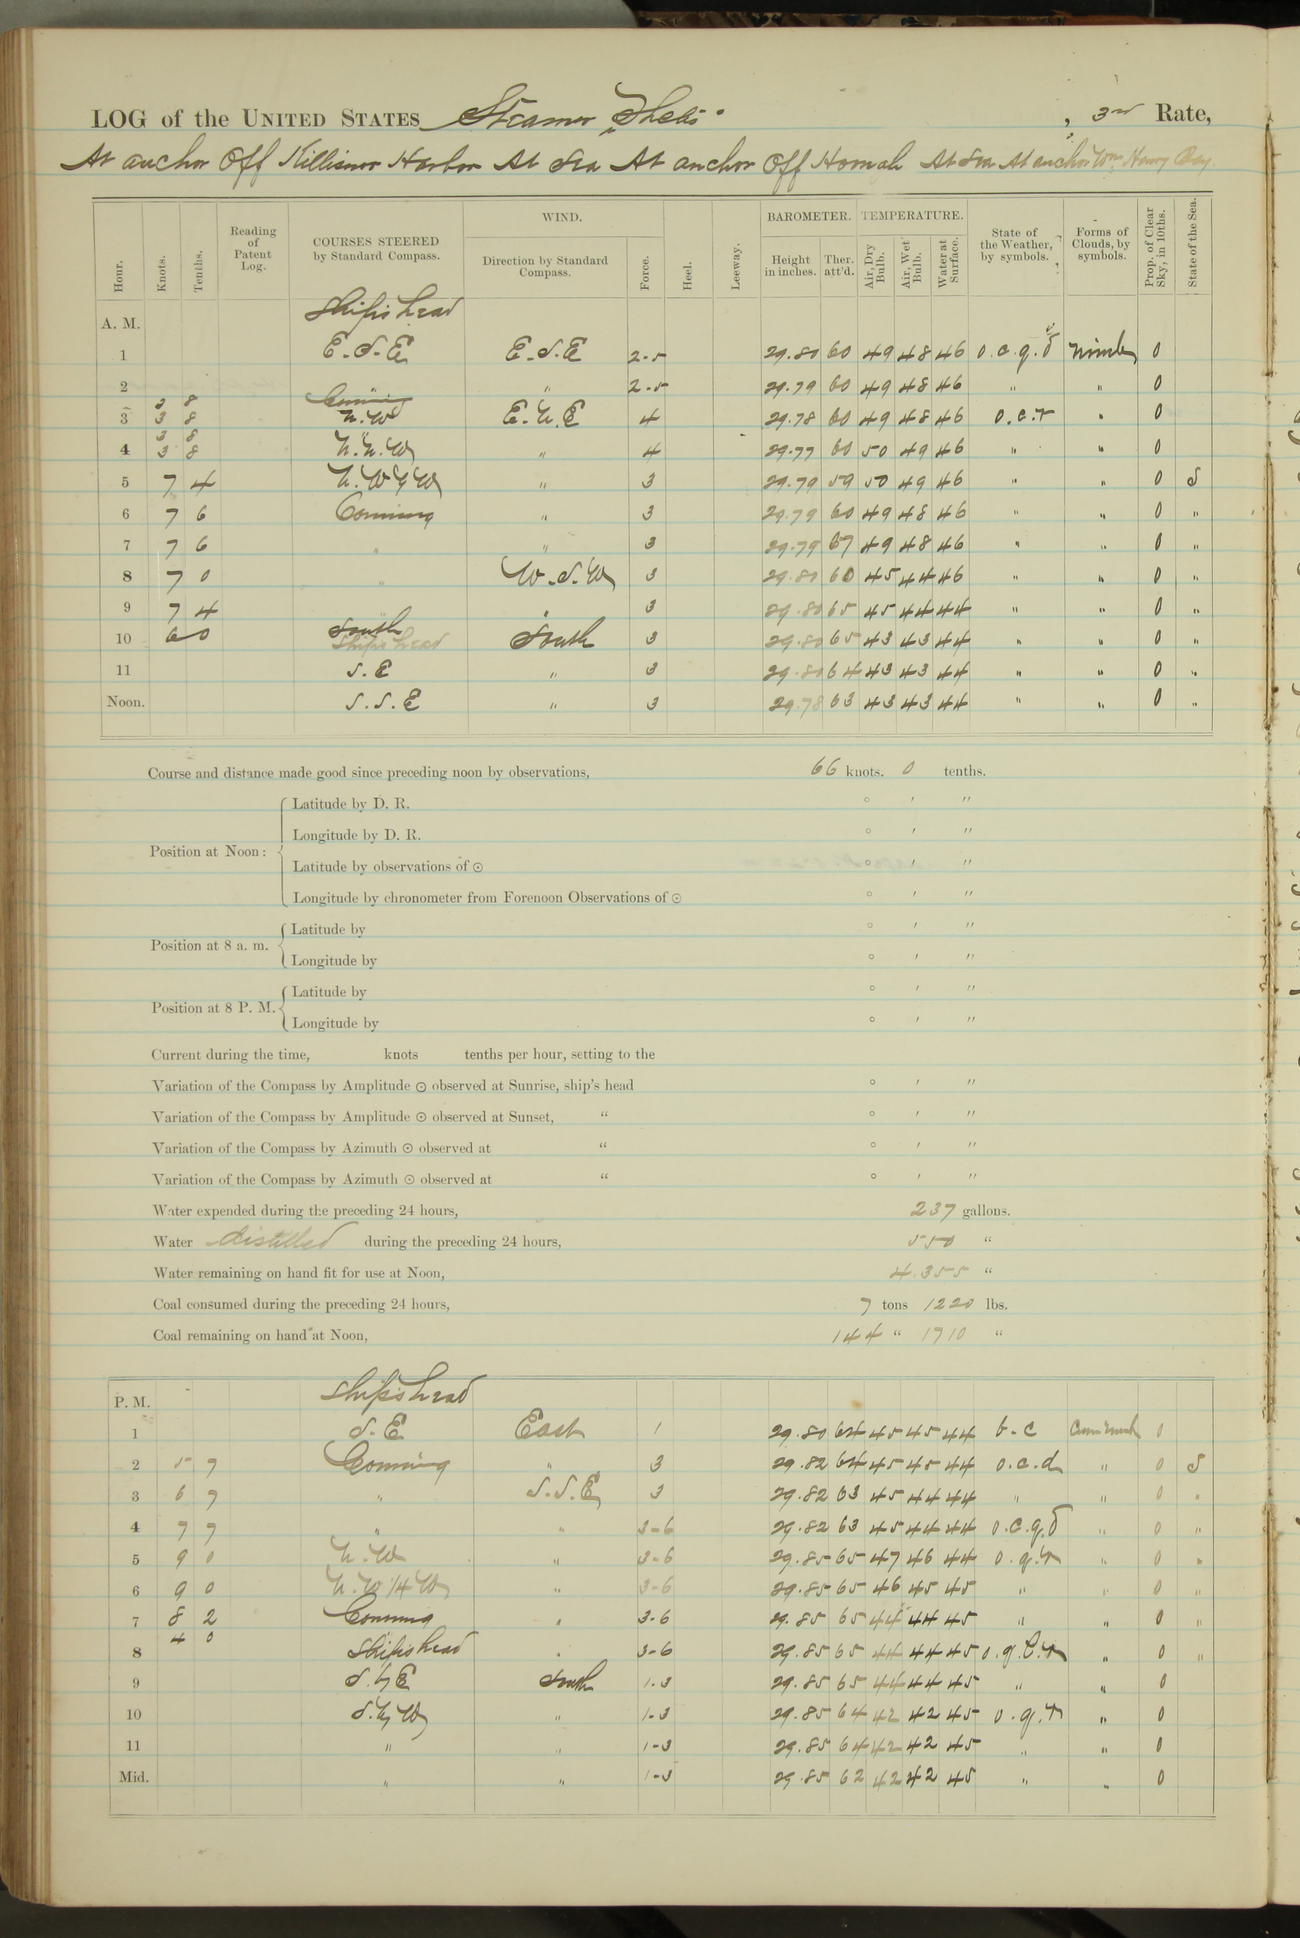 LOG of the UNITED STATES Steamer Thetis, 3rd Rate,
At anchor Off Killisnoo Harbor At Sea At anchor Off Hoonah At Sea At anchor Wm Henry Bay.
Hour. Knots. Tenths. Reading of Patent Log. COURSES STEERED by Standard Compass. WIND. Direction by Standard Compass. Force. Heel. Leeway. BAROMETER. Height in inches. Ther. att'd. TEMPERATURE. Air, Dry Bulb. Air, Wet Bulb. Water at Surface. State of the Weather, by symbols. Forms of Clouds, by symbols. Prop. of Clear Sky, in 10ths. State of the Sea.
A. M. Ship's head
1 E.S.E E.S.E 2-5 29.80 60 49 48 46 o.c.g.d Nimb 0
2 " " 2-5 29.79 60 49 48 46 " " 0
3 3 8 3 8 Conning N.W E.N.E 4 29.78 60 49 48 46 o.c.r " 0
4 3 8 3 8 N.N.W " 4 29.77 60 50 49 46 " " 0
5 7 4 N.W by W " 3 29.79 59 50 49 46 " " 0 S
6 7 6 Conning " 3 29.79 60 49 48 46 " " 0 "
7 7 6 " " 3 29.79 67 49 48 46 " " 0 "
8 7 0 " W.S.W 3 29.80 60 45 44 46 " " 0 "
9 7 4 " " 3 29.80 65 45 44 44 " " 0 "
10 6 0 South Ship's head South 3 29.80 65 43 43 44 " " 0 "
11 S.E " 3 29.80 64 43 43 44 " " 0 "
Noon. S.S.E " 3 29.78 63 43 43 44 " " 0 "
Course and distance made good since preceding noon by observations, 66 knots. 0 tenths.
Position at Noon: Latitude by D. R. ° ′ ″
Longitude by D. R. ° ′ ″
Latitude by observations of ☉ ° ′ ″
Longitude by chronometer from Forenoon Observations of ☉ ° ′ ″
Position at 8 a. m. Latitude by ° ′ ″
Longitude by ° ′ ″
Position at 8 P. M. Latitude by ° ′ ″
Longitude by ° ′ ″
Current during the time, knots tenths per hour, setting to the
Variation of the Compass by Amplitude ☉ observed at Sunrise, ship's head ° ′ ″
Variation of the Compass by Amplitude ☉ observed at Sunset, " ° ′ ″
Variation of the Compass by Azimuth ☉ observed at " ° ′ ″
Variation of the Compass by Azimuth ☉ observed at " ° ′ ″
Water expended during the preceding 24 hours, 237 gallons.
Water distilled during the preceding 24 hours, 550 "
Water remaining on hand fit for use at Noon, 4.355 "
Coal consumed during the preceding 24 hours, 7 tons 1220 lbs.
Coal remaining on hand at Noon, 144 " 1710 "
P. M. Ship's head
1 S.E East 1 29.80 64 45 45 44 b-c 0
2 5 7 Conning " 3 29.82 64 45 45 44 o.c.d " 0 S
3 6 7 " S.S.E 3 29.82 63 45 44 44 " " 0 "
4 7 7 " " 3-6 29.82 63 45 44 44 o.c.g.d " 0 "
5 9 0 N.W " 3-6 29.85 65 47 46 44 o.g.r " 0 "
6 9 0 N.W 1/4 W " 3-6 29.85 65 46 45 45 " " 0 "
7 8 2 Conning " 3-6 29.85 65 44 44 45 " " 0 "
8 4 0 Ship's head " 3-6 29.85 65 44 44 45 o.g.c.r " 0 "
9 S. by E South 1-3 29.85 65 44 44 45 " " 0
10 S. by W " 1-3 29.85 64 42 42 45 o.g.r " 0
11 " " 1-3 29.85 64 42 42 45 " " 0
Mid. " " 1-3 29.85 62 42 42 45 " " 0